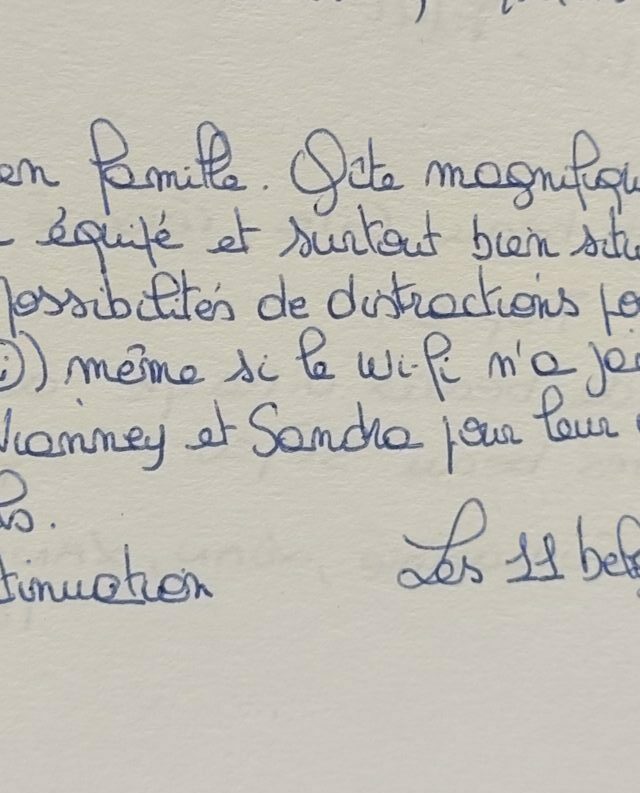 en famille. Gîte magnifiqu
équipé et surtout bien situ
possibilités de distractions po
même si le wi-fi n'a ja
Vianney et Sandra pour leur
tinuation Les 11 bel